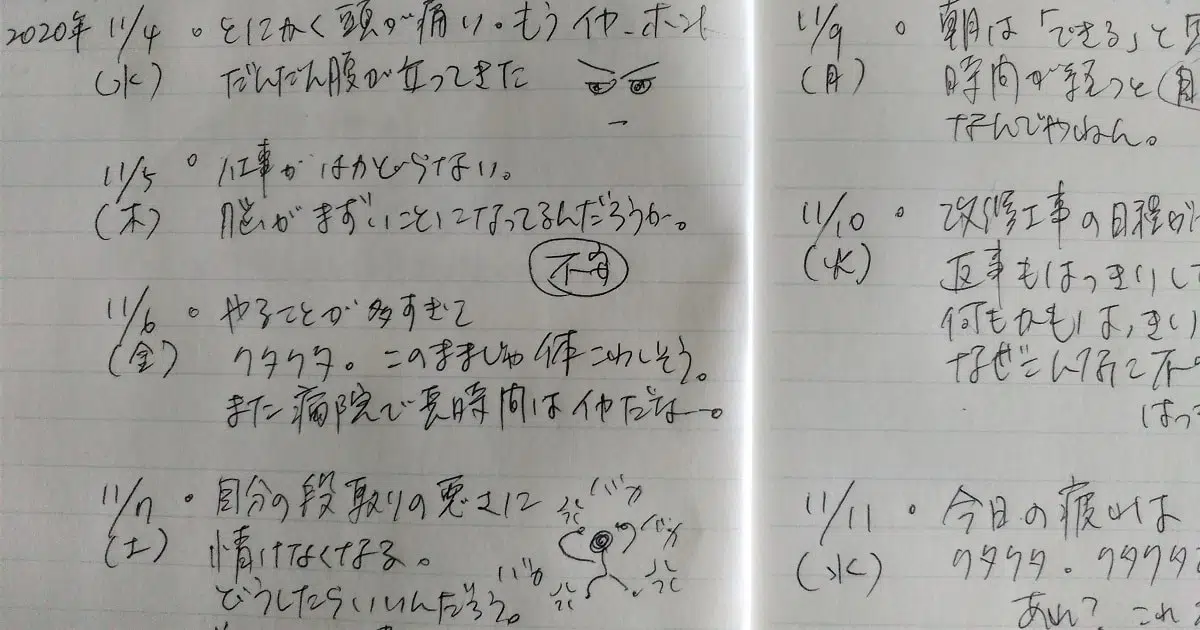 2020年 11/4 。とにかく頭が痛い。もうイヤ-ホント
(水) だんだん腹が立ってきた
11/5 。仕事がはかどらない。
(木) 脳がまずいことになってるんだろうか。
不安
11/6 。やることが多すぎて
(金) クタクタ。このままじゃ体こわしそう。
また病院で長時間はイヤだなー。
11/7 。自分の段取りの悪さに
(土) 情けなくなる。
どうしたらいいんだろう。
バカ
バカ
バカ
11/9 。朝は「できる」と
(月) 時間が経つと
なんでやねん。
11/10 。改修工事の日程が
(火) 返事もはっきりし
何もかもは、きり
なぜこんなに不
はっ
11/11 。今日の疲れは
(水) クタクタ。クタクタ
あれ?これ